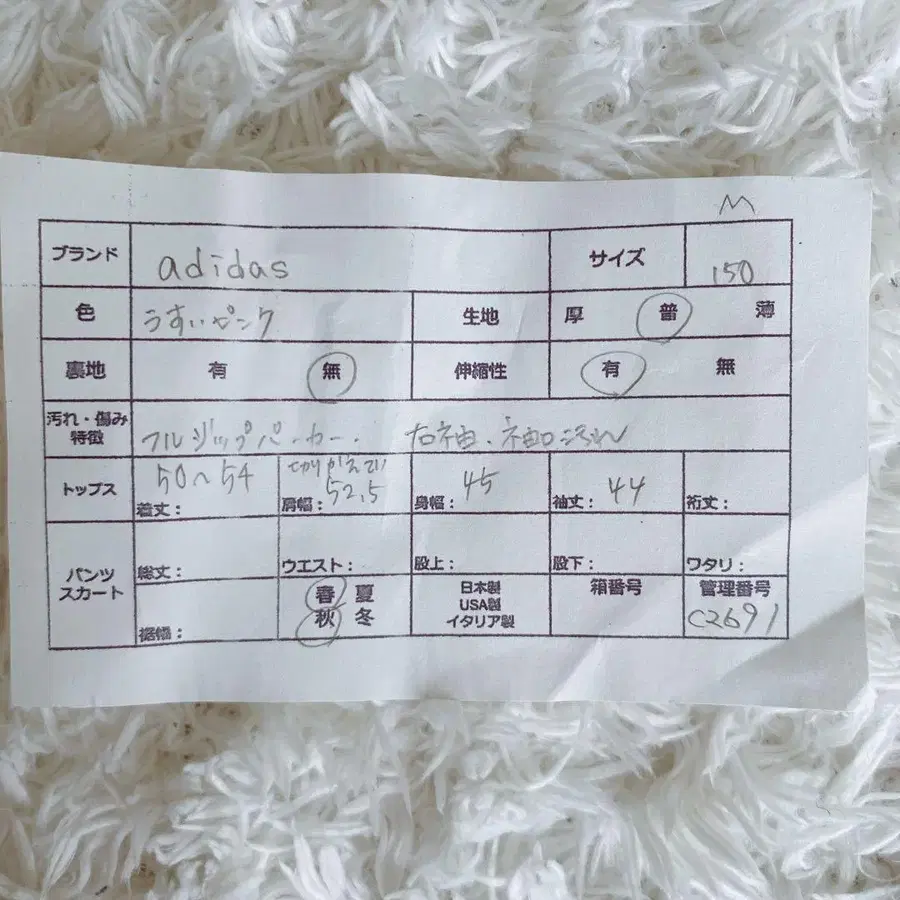 M
ブランド adidas サイズ 150
色 うすいピンク 生地 厚 普 薄
裏地 有 無 伸縮性 有 無
汚れ・傷み
特徴 フルジップパーカー. 右袖.袖口汚れ
トップス 50〜54 切りかえてい 52.5 45 44
着丈: 肩幅: 身幅: 袖丈: 裄丈:
パンツ
スカート 総丈: ウエスト: 股上: 股下: ワタリ:
裾幅: 春 夏
秋 冬
日本製
USA製
イタリア製
箱番号
管理番号
C2691